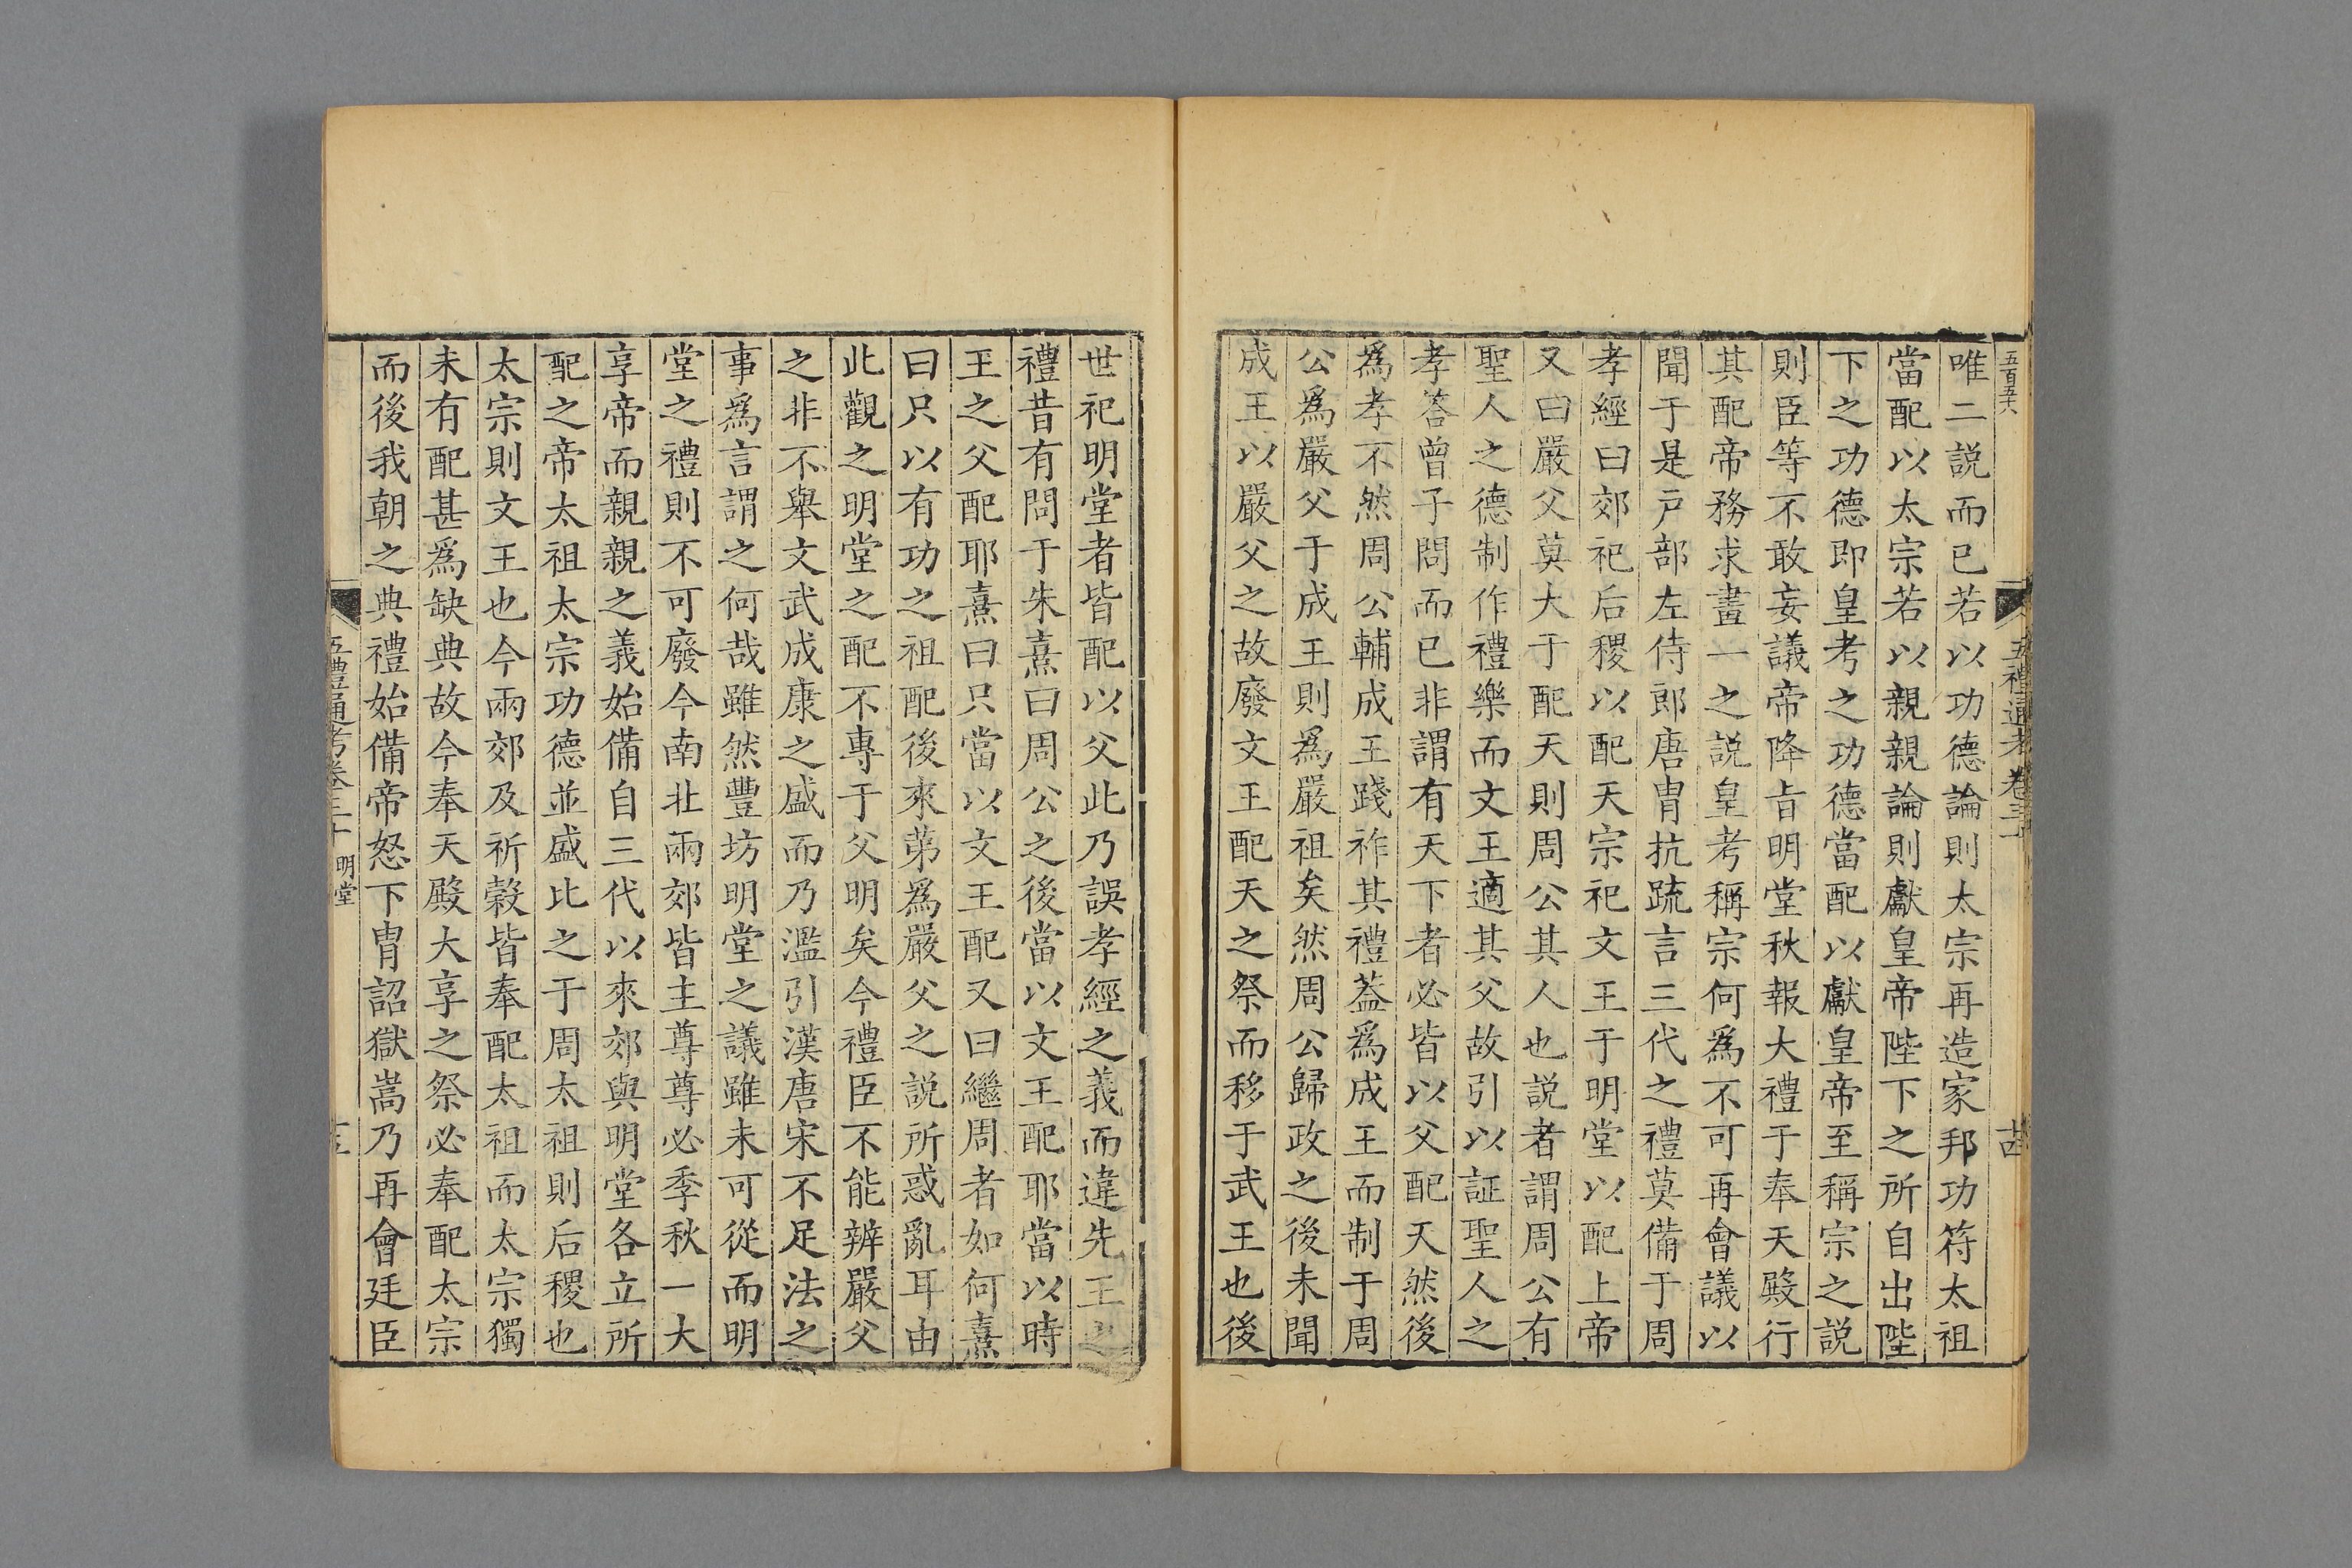 五百五六
五禮通考卷三十
十四
唯二説而已若以功德論則太宗再造家邦功符太祖
當配以太宗若以親親論則獻皇帝陛下之所自出陛
下之功德即皇考之功德當配以獻皇帝至稱宗之説
則臣等不敢妄議帝降旨明堂秋報大禮于奉天殿行
其配帝務求畫一之説皇考稱宗何爲不可再會議以
聞于是戸部左侍郎唐胄抗疏言三代之禮莫備于周
孝經曰郊祀后稷以配天宗祀文王于明堂以配上帝
又曰嚴父莫大于配天則周公其人也説者謂周公有
聖人之德制作禮樂而文王適其父故引以証聖人之
孝答曾子問而已非謂有天下者必皆以父配天然後
爲孝不然周公輔成王踐祚其禮葢爲成王而制于周
公爲嚴父于成王則爲嚴祖矣然周公歸政之後未聞
成王以嚴父之故廢文王配天之祭而移于武王也後
世祀明堂者皆配以父此乃誤孝經之義而違先王之
禮昔有問于朱熹曰周公之後當以文王配耶當以時
王之父配耶熹曰只當以文王配又曰繼周者如何熹
曰只以有功之祖配後來苐爲嚴父之説所惑亂耳由
此觀之明堂之配不專于父明矣今禮臣不能辨嚴父
之非不舉文武成康之盛而乃濫引漢唐宋不足法之
事爲言謂之何哉雖然豐坊明堂之議雖未可從而明
堂之禮則不可廢今南北兩郊皆主尊尊必季秋一大
享帝而親親之義始備自三代以來郊與明堂各立所
配之帝太祖太宗功德並盛比之于周太祖則后稷也
太宗則文王也今兩郊及祈穀皆奉配太祖而太宗獨
未有配甚爲缺典故今奉天殿大享之祭必奉配太宗
而後我朝之典禮始備帝怒下胄詔獄嵩乃再會廷臣
五禮通考卷三十
明堂